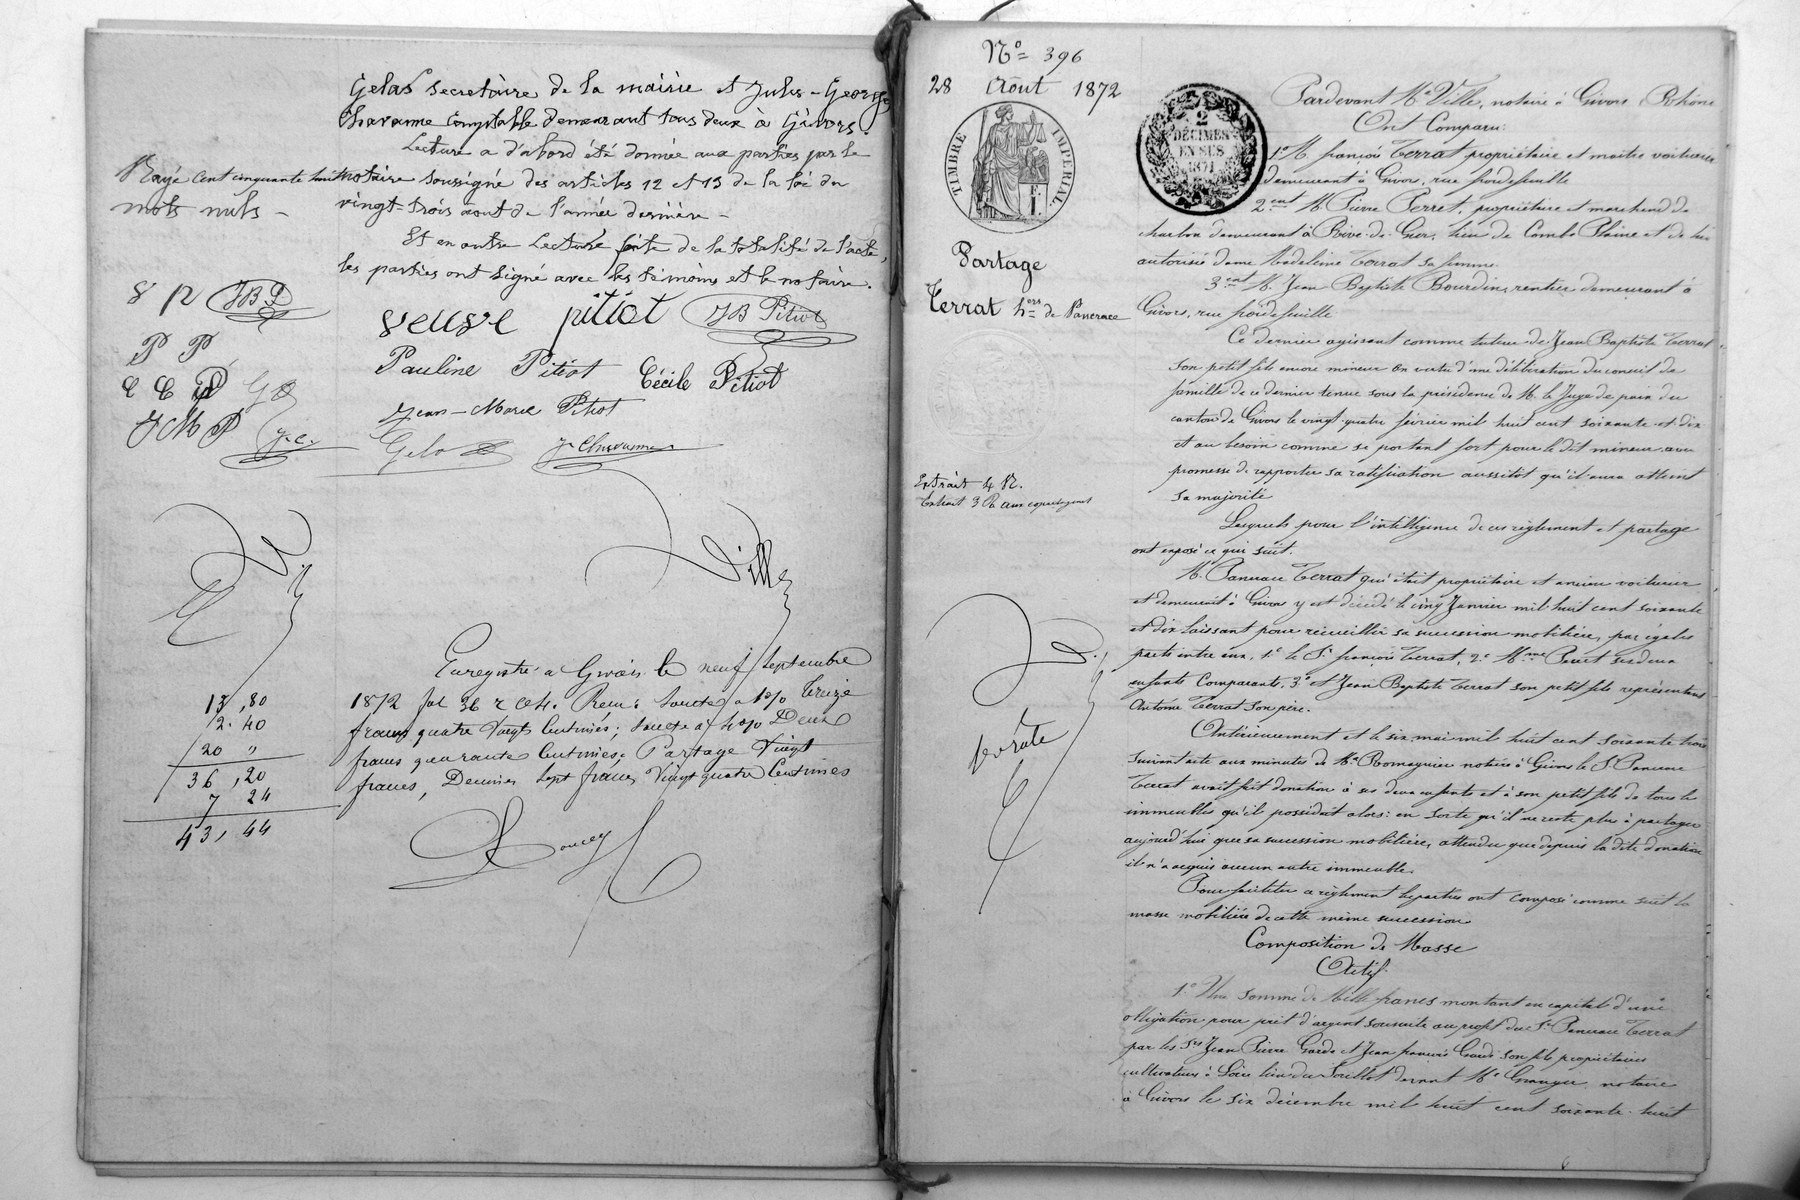 Gelas secretaire de la mairie et Jules-George
Chavanne comptable demeurant tous deux à Givors.
Lecture a d'abord été donnée aux parties par le
notaire soussigné des articles 12 et 13 de la loi du
vingt-trois aout de l'année dernière -
Et en outre Lecture faite de la totalité de l'acte,
les parties ont signé avec les témoins et le notaire.
Rayé cent cinquante huit
mots nuls -
JBP
veuve pitiot JB Pitiot
P P
Pauline Pitiot Cécile Pitiot
JMP J.C.
Jean-Marie Pitiot
Gelas J. Chavanne
Ville
Enregistré à Givors le neuf Septembre
1872 fol 36 r C 4. Reçu: soulte à 1% Treize
francs quatre Vingt Centimes; soulte à 4% Deux
francs quarante Centimes; Partage Vingt
francs, Decimes sept francs Vingt quatre Centimes
13,80
2.40
20 "
36,20
7 24
43,44
No 396
28 Aout 1872
TIMBRE IMPERIAL
2
DÉCIMES
EN SUS
1871
Partage
Terrat hers de Pancrace
Extrait 4 R.
Extrait 3 R
Pardevant Me Ville, notaire à Givors, Rhône
Ont Comparu:
1o M. françois Terrat propriétaire et maitre voiturier
demeurant à Givors, rue
2ent M. Pierre Perret, propriétaire et marchand de
charbon demeurant à Rive-de-Gier, lieu de Combe Plaine et de lui
autorisée dame Madeleine Terrat sa femme.
3ent M. Jean Baptiste Bourdin, rentier demeurant à
Givors, rue
Ce dernier agissant comme tuteur de Jean Baptiste Terrat
son petit fils encore mineur en vertu d'une délibération du conseil de
famille de ce dernier tenue sous la présidence de M. le Juge de paix du
canton de Givors le vingt-quatre février mil huit cent soixante et dix
et au besoin comme se portant fort pour le dit mineur avec
promesse de rapporter sa ratification aussitôt qu'il aura atteint
sa majorité
Lesquels pour l'intelligence de ces règlement et partage
ont exposé ce qui suit.
M. Pancrace Terrat qui était propriétaire et ancien voiturier
et demeurait à Givors y est décédé le cinq Janvier mil huit cent soixante
et dix laissant pour recueillir sa succession mobilière, par égales
parts entre eux, 1o le Sr. françois Terrat, 2o Mme Perret ses deux
enfants Comparants, 3o et Jean Baptiste Terrat son petit fils représentant
Antoine Terrat son père.
Antérieurement et le six mai mil huit cent soixante trois
suivant acte aux minutes de Me Romagnier notaire à Givors le Sr Pancrace
Terrat avait fait donation à ses deux enfants et à son petit fils de tous les
immeubles qu'il possédait alors: en sorte qu'il ne reste plus à partager
aujourd'hui que sa succession mobilière, attendu que depuis la dite donation
il n'a acquis aucun autre immeuble.
Pour faciliter ce règlement les parties ont composé comme suit la
masse mobilière de cette même succession
Composition de Masse
Actif
1o Une somme de Mille francs montant en capital d'une
obligation pour prêt d'argent souscrite au profit du Sr Pancrace Terrat
par les Srs Jean Pierre Garde et Jean françois Garde son fils propriétaires
cultivateurs à Loire lieu du devant Me Granger, notaire
à Givors le six décembre mil huit cent soixante-huit